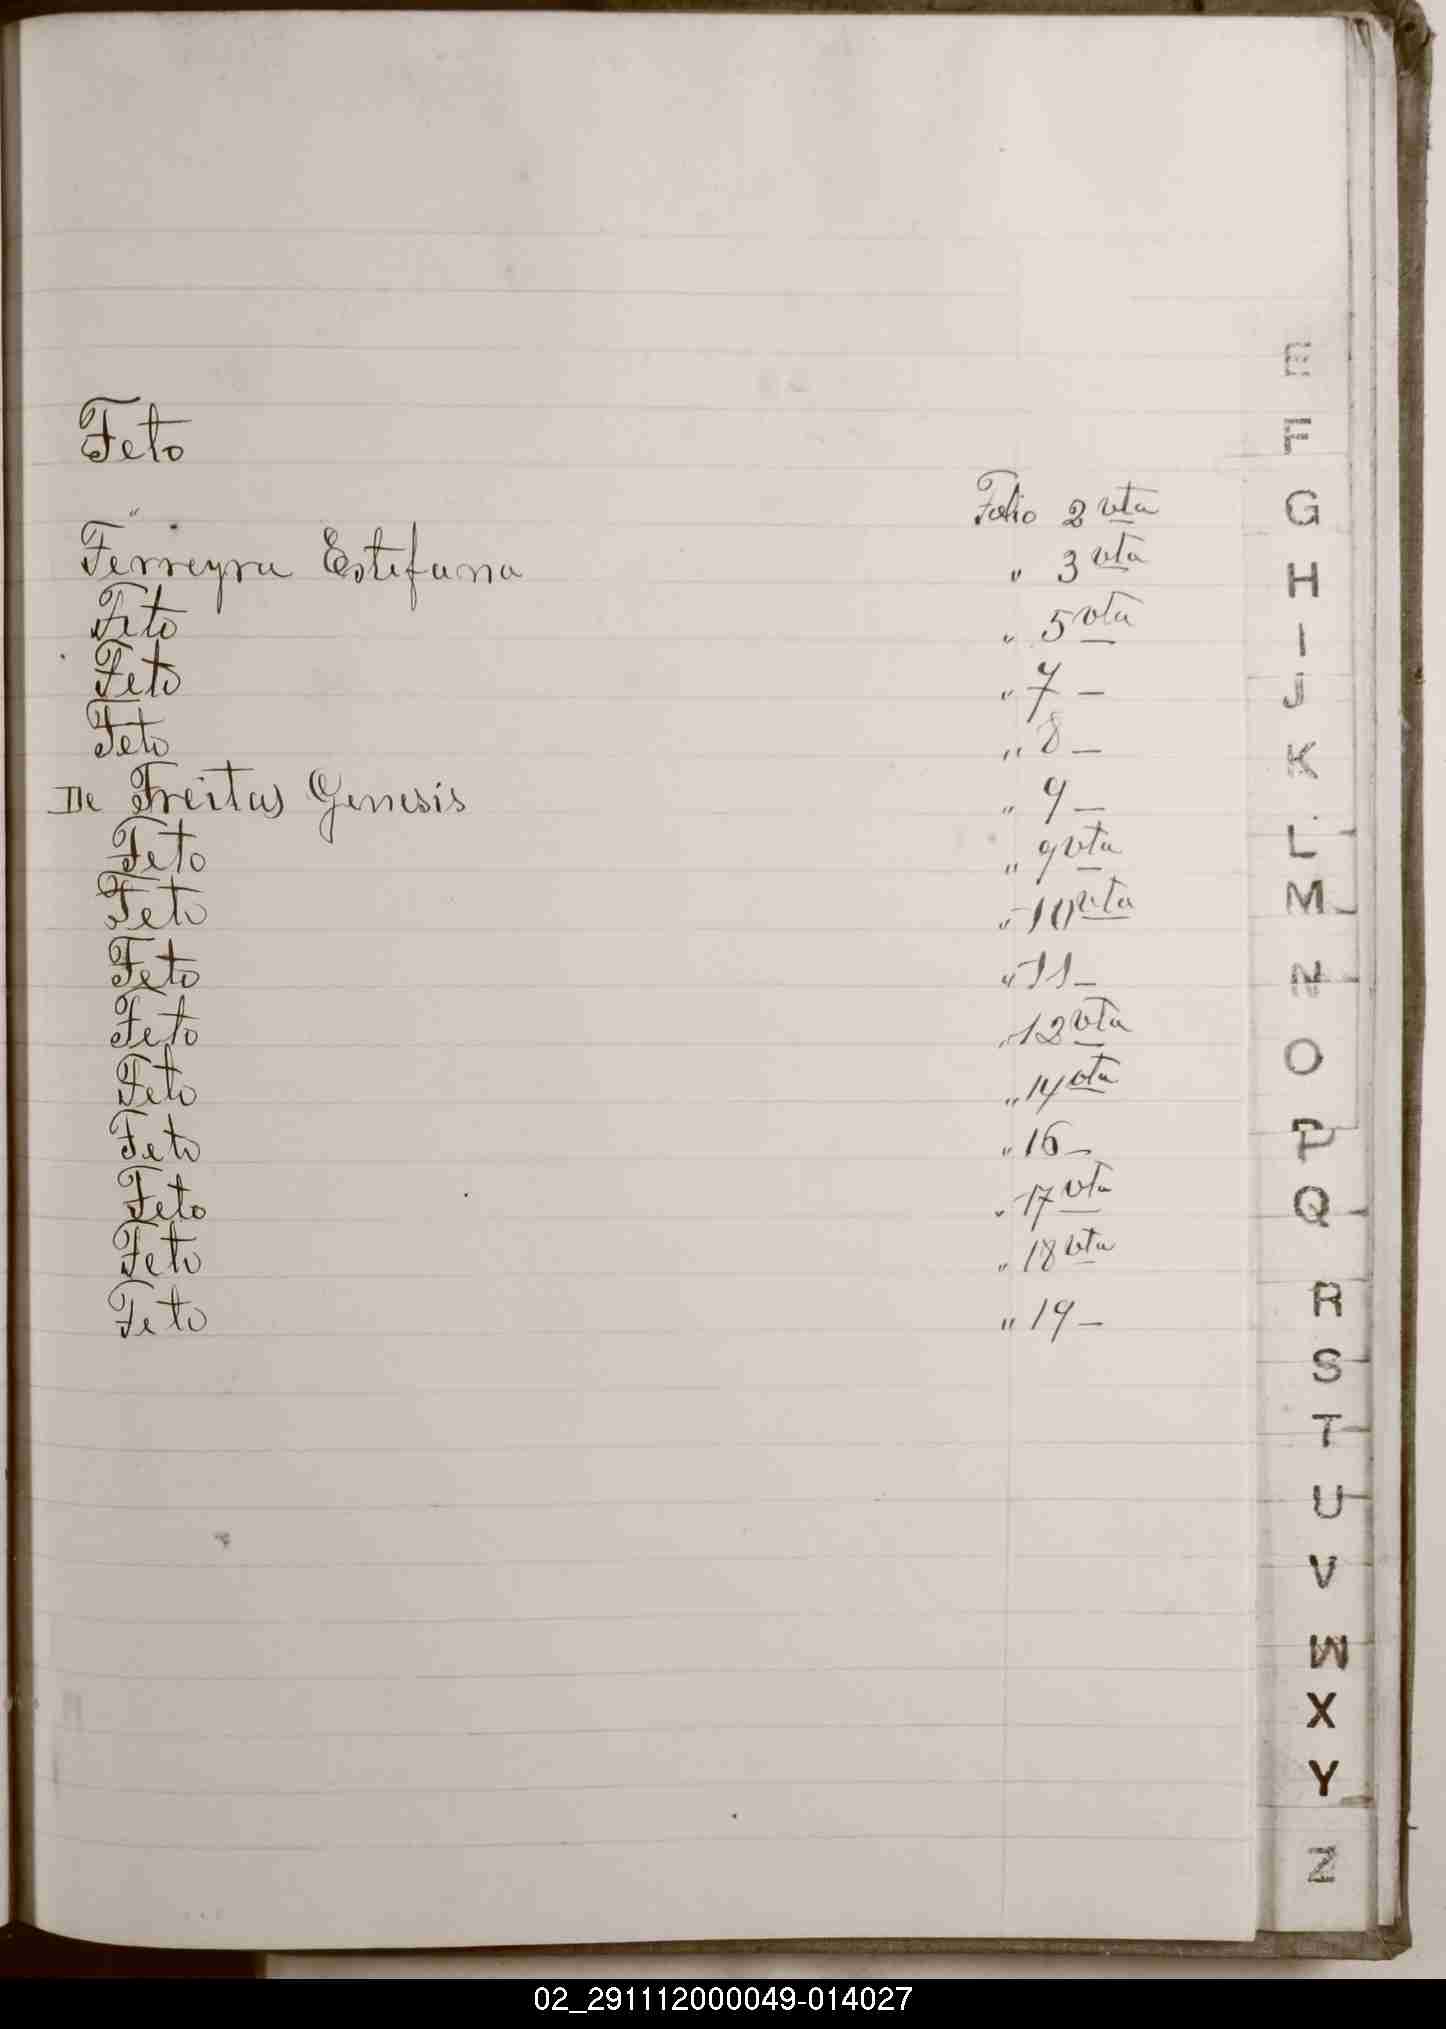 Feto
" Folio 2 vta
Ferreyra Estefana " 3 vta
Feto " 5 vta
Feto " 7 —
Feto " 8 —
De Freitas Genesis " 9 —
Feto " 9 vta
Feto " 10 vta
Feto " 11 —
Feto " 12 vta
Feto " 14 vta
Feto " 16 —
Feto " 17 vta
Feto " 18 vta
Feto " 19 —
E
F
G
H
I
J
K
L
M
N
O
P
Q
R
S
T
U
V
W
X
Y
Z
02_291112000049-014027